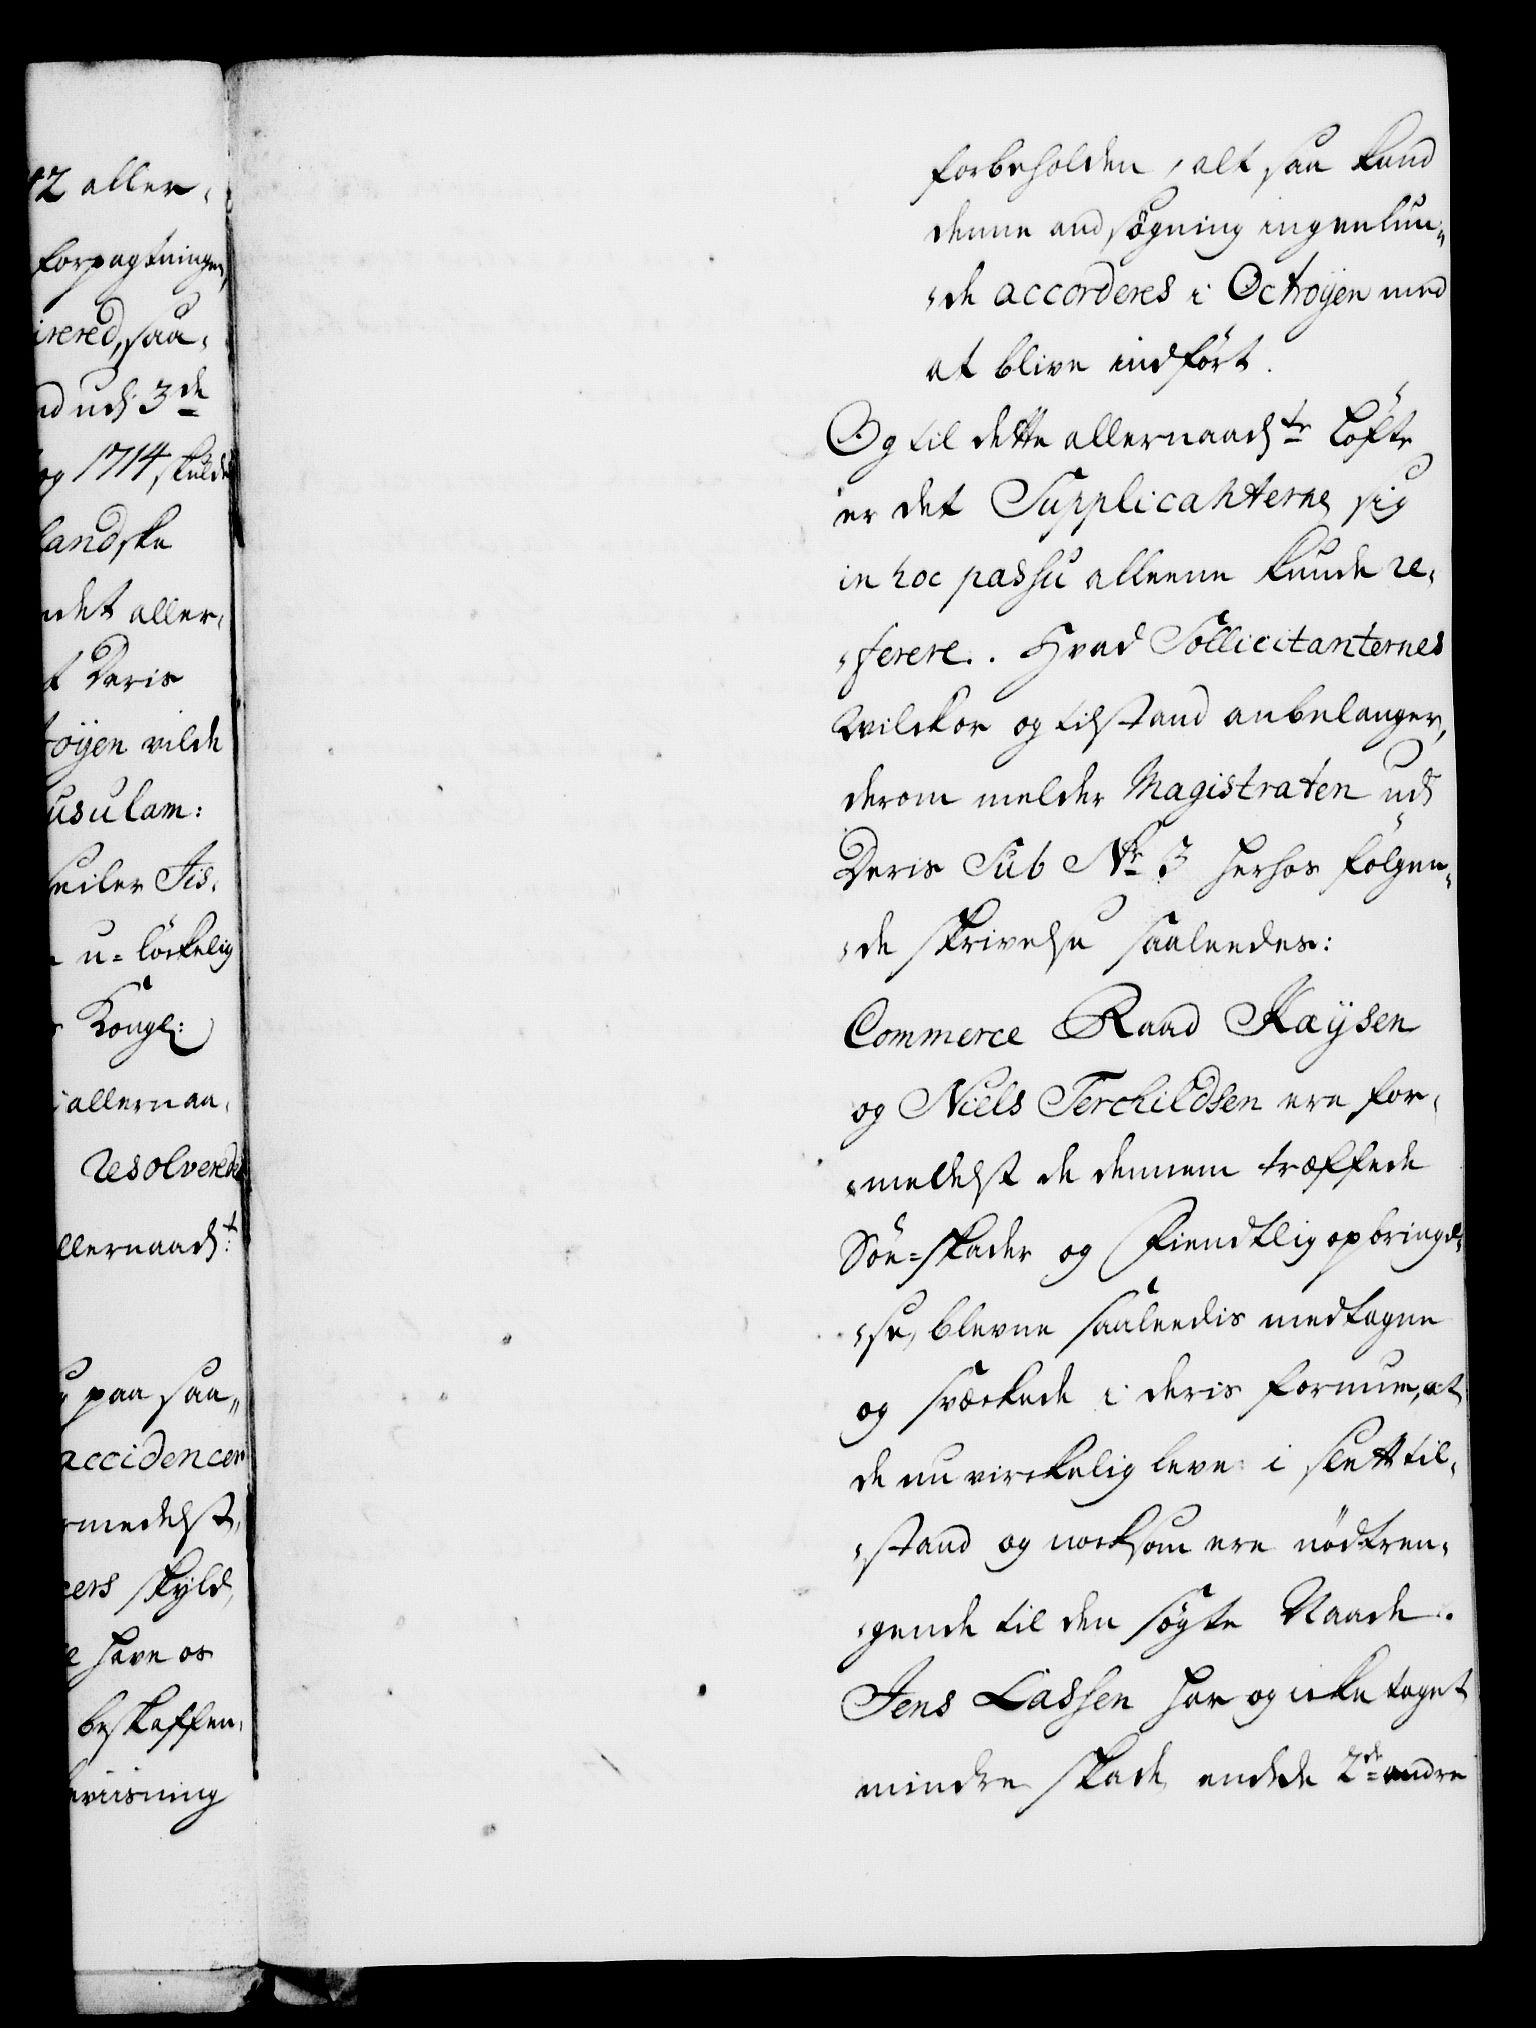 42 aller-
forpagtningen,
irered, saa-
nd udj 3de
og 1714 skulde
landske
ndet aller-
t Deris
töyen vilde
usulam:
seiler Jis-
u-löckelig
Kongl:
allernaa-
resolverede
llernaadst:
paa saa-
accidencer
rmedelst,
cers skyld,
have os
beskaffen-
eviisning
forbeholden, alt saa kand
denne andsøgning ingenlun-
de accorderes i Octroyen med
at blive indfört.
Og til dette allernaadste Löfte
er det Supplicanterne sig
in hoc passu alleene kunde re-
ferere. Hvad Sollicitanternes
Wilckor og tilstand anbelanger,
derom melder Magistraten udj
Deris Sub No 3 herhos fölgen-
de skrivelse saaleedes:
Commerce Raad Kaÿsen
og Niels Terchildsen ere for-
meldelst de dennem træffede
Söe-skader og Fiendtlig opbringel-
se, blevne saaleedis medtagne
og svækede i deris formue, at
de nu virckelig leve i slett til-
stand og nocksom ere nödtren-
gende til den søgte Naade.
Jens Lassen har og icke taget
mindre skade end de 2de andre